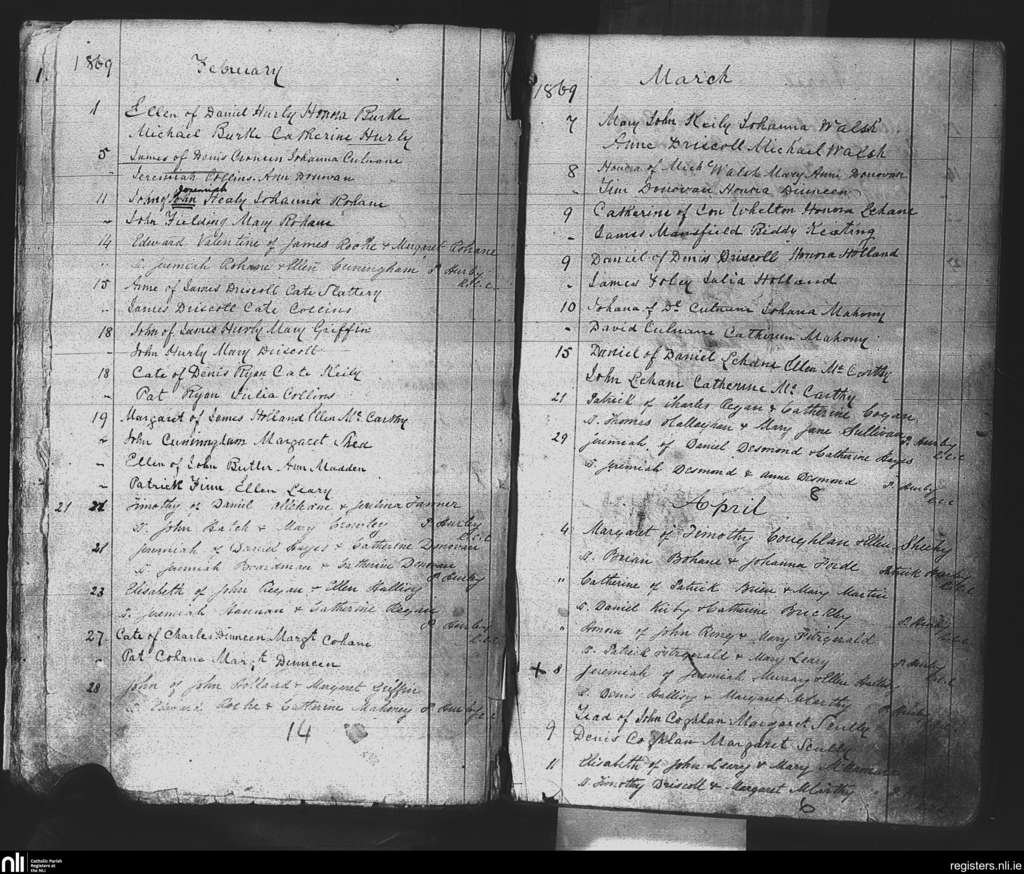 1869 February
1 Ellen of Daniel Hurly Honora Burke
Michael Burke Catherine Hurly
5 James of Denis Croneen Johanna Culnane
- Jeremiah Collins Ann Donovan
Jeremiah
11 John of John Healy Johanna Rohane
- John Fielding Mary Rohane
14 Edward Valentine of James Roche & Margaret Rohane
" S. Jeremiah Rohane & Ellen Cuningham P. Hurby
R.C.C.
15 Anne of James Driscoll Cate Slattery
.. James Driscoll Cate Collins
18 John of James Hurly Mary Griffin
- John Hurly Mary Driscoll
18 Cate of Denis Ryan Cate Keily
- Pat Ryan Julia Collins
19 Margaret of James Holland Ellen Mc Carthy
John Cunningham Margaret Shea
- Ellen of John Butler Ann Madden
- Patrick Finn Ellen Leary
21 21 Timothy of Daniel & Tanner
S. John & Mary Crowley P. Hurby
C.C.
21 Jeremiah of Daniel Hayes & Catherine Donovan
S. Jeremiah Boardman & Catherine Donovan
P. Hurby
23 Elisabeth of John Regan & Ellen
S. Jeremiah Hannan & Catherine Regan
P. Hurby
27 Cate of Charles Dinneen Margt Cohane
- Pat Cohane Margt Dinneen
28 John of John Holland & Margaret Griffin
S. Edward Roche & Catherine Mahoney P. Hurby
14
1869 March
7 Mary John Keily Johanna Walsh
Anne Driscoll Michael Walsh
8 Honora of Michl Walsh Mary Anne Donovan
- Tim Donovan Honora Dinneen
9 Catherine of Con Whelton Honora Lehane
- James Mansfield Biddy Keating
9 Daniel of Denis Driscoll Honora Holland
- James Foley Julia Holland
10 Johana of Dl Culnane Johana Mahony
- David Culnane Catherine Mahony
15 Daniel of Daniel Lehane Ellen Mc Carthy
John Lehane Catherine Mc Carthy
21 Patrick of Charles Regan & Catherine Cogan
S. Thomas & Mary Jane Sullivan P. Hurby
C.C.
29 Jeremiah of Daniel Desmond & Catherine Hayes
S. Jeremiah Desmond & Anne Desmond P. Hurby
8
April
4 Margaret of Timothy Coughlan & Ellen Sheehy
S. Brian Bohane & Johanna Patrick Hurby
" Catherine of Patrick Brien & Mary Martin
S. Daniel Kirby & Catherine Brickley
P. Hurby
" Honora of John Ring & Mary Fitzgerald
S. Patrick Fitzgerald & Mary Leary P. Hurby
+ 8 Jeremiah of Jeremiah Murray & Ellen
S. Denis & Margaret
of John Coghlan Margaret Scully
9 Denis Coghlan Margaret Scully
11 Elisabeth of John Leary & Mary
S. Timothy Driscoll & Margaret
6
nli Catholic Parish
Registers at
the NLI
registers.nli.ie